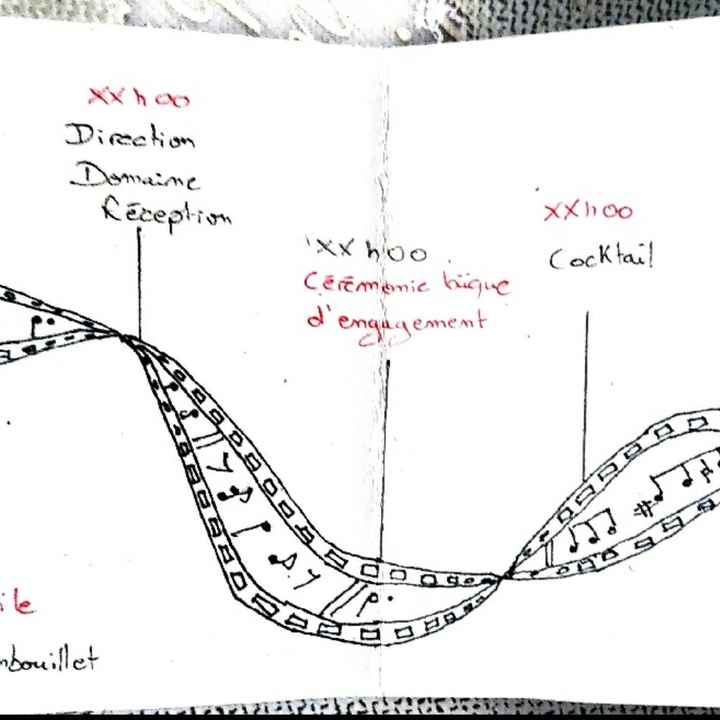 XX h 00
Direction
Domaine
Réception
XX h 00
Cérémonie laïque
d'engagement
XX h 00
Cocktail
ile
mbouillet